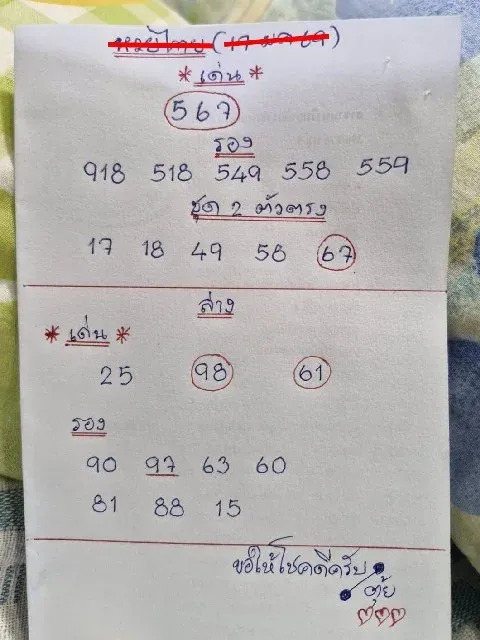 หวยไทย (17 ม.ค 69)
* เด่น *
567
รอง
918 518 549 558 559
ชุด 2 ตัวตรง
17 18 49 58 67
ล่าง
* เด่น *
25 98 61
รอง
90 97 63 60
81 88 15
ขอให้โชคดีครับ
ตุ้ย